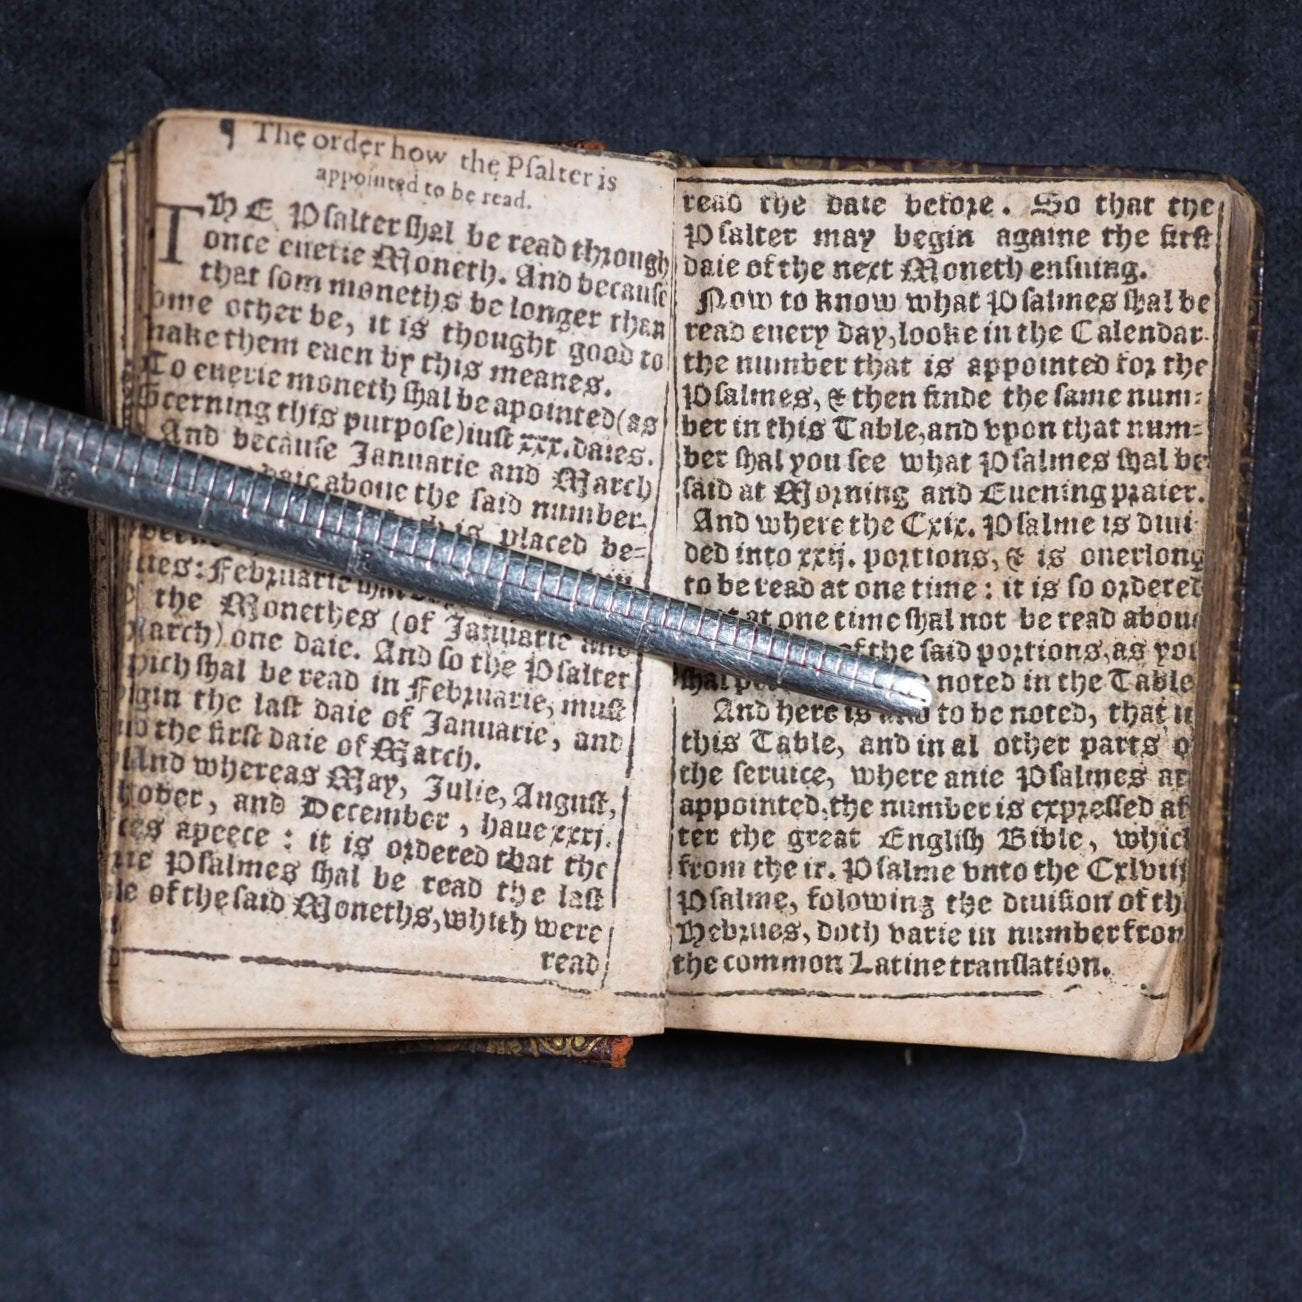 ¶ The order how the Psalter is
appointed to be read.
THE Psalter shal be read through
once euerie Moneth. And because
that som moneths be longer than
ome other be, it is thought good to
make them euen by this meanes.
To euerie moneth shal be apointed (as
cerning this purpose) iust xxx. daies.
And because Januarie and March
daie aboue the said number.
is placed be=
ties: Februarie
the Monethes (of Januarie and
arch) one daie. And so the Psalter
hich shal be read in Februarie, must
gin the last daie of Januarie, and
the first daie of March.
And whereas May, Julie, August,
tober, and December, haue xxxj.
es apeece: it is ordered that the
Psalmes shal be read the last
ie of the said Moneths, which were
read
read the daie before. So that the
Psalter may begin againe the first
daie of the next Moneth ensuing.
Now to know what Psalmes shal be
read euery day, looke in the Calendar
the number that is appointed for the
Psalmes, & then finde the same num=
ber in this Table, and vpon that num=
ber shal you see what Psalmes shal be
said at Morning and Euening praier.
And where the Cxix. Psalme is diui
ded into xxij. portions, & is ouerlong
to be read at one time: it is so ordered
at one time shal not be read aboue
of the said portions, as you
shal noted in the Table
And here is also to be noted, that in
this Table, and in al other parts o
the seruice, where anie Psalmes ar
appointed, the number is expressed af
ter the great English Bible, which
from the ix. Psalme vnto the Cxlviij
Psalme, folowing the diuision of th
Hebrues, doth varie in number from
the common Latine translation.